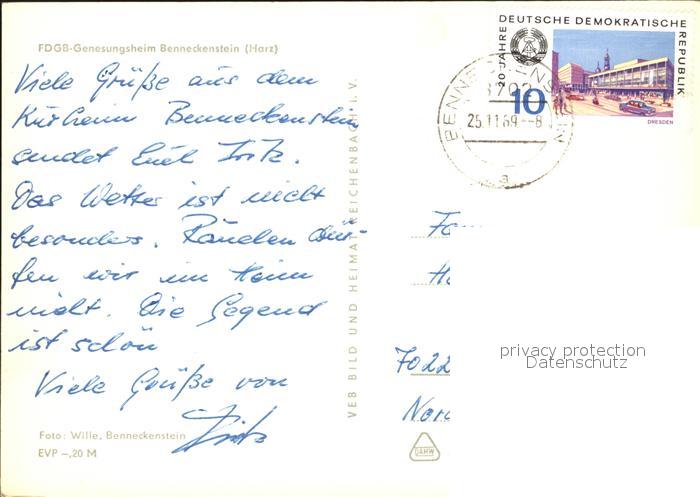 FDGB-Genesungsheim Benneckenstein (Harz)
Viele Grüße aus dem
Kurheim Benneckenstein
sendet Euch Fritz.
Das Wetter ist nicht
besonders. Rauchen dür-
fen wir im Heim
nicht. Die Gegend
ist schön
Viele Grüße von
Fritz
Foto: Wille, Benneckenstein
EVP –,20 M
VEB BILD UND HEIMAT REICHENBACH i. V.
DEUTSCHE DEMOKRATISCHE
REPUBLIK
20 JAHRE
10
DRESDEN
25.11.69.-8
a
Fa
7022
privacy protection
Datenschutz
DAHW